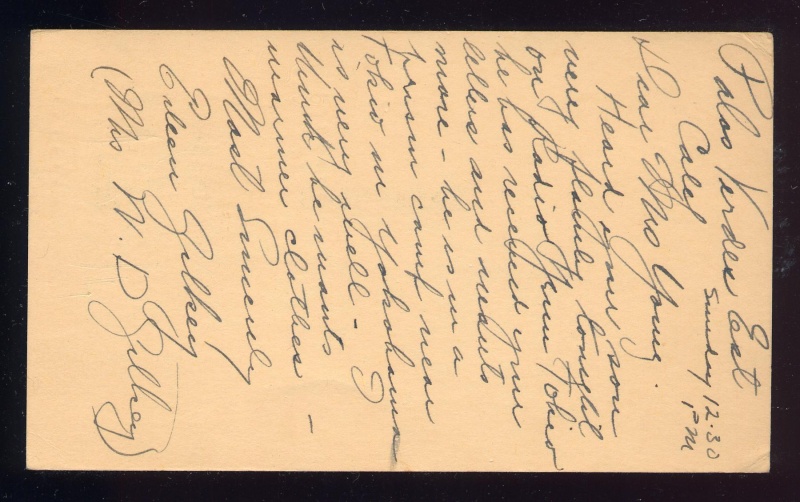 Palos Verdes Est
Calif Sunday 12-30
PM
Dear Mrs Young.
Heard your son
very plainly tonight
on Radio from Tokio
he has received your
letters and wants
more - he is in a
prison camp near
Tokio in Yokohama
is very well - I
think he wants
warmer clothes -
Most Sincerely
Eileen Gilkey
(Mrs W. D. Gilkey)